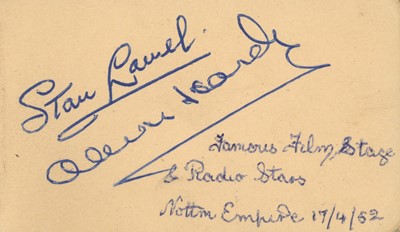 Stan Laurel.
Oliver Hardy
Famous Film, Stage
& Radio Stars
Nottm Empire 17/4/52